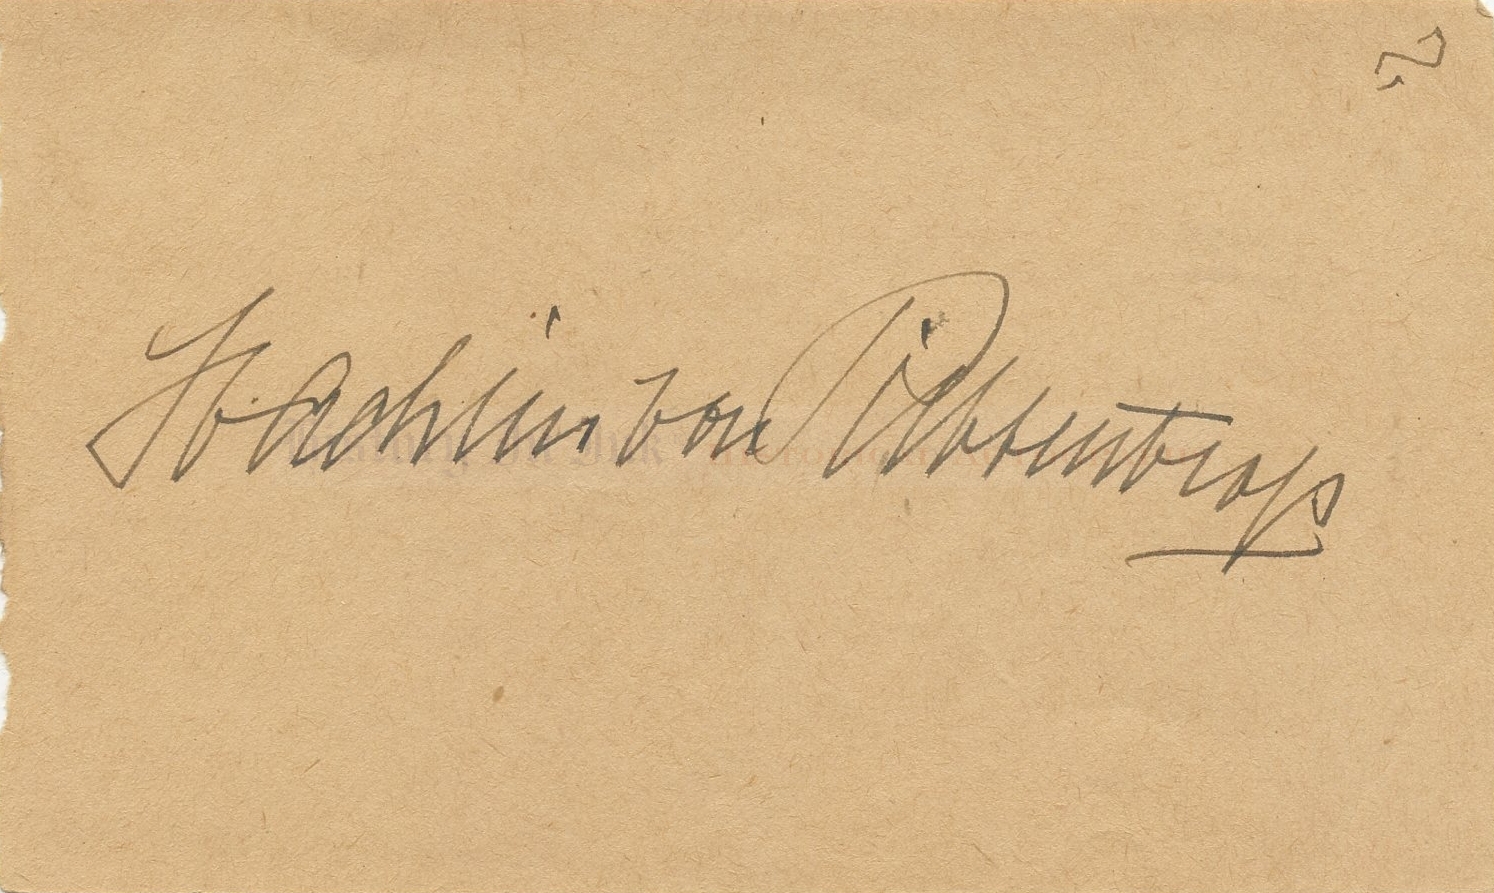 Joachim von Ribbentrop